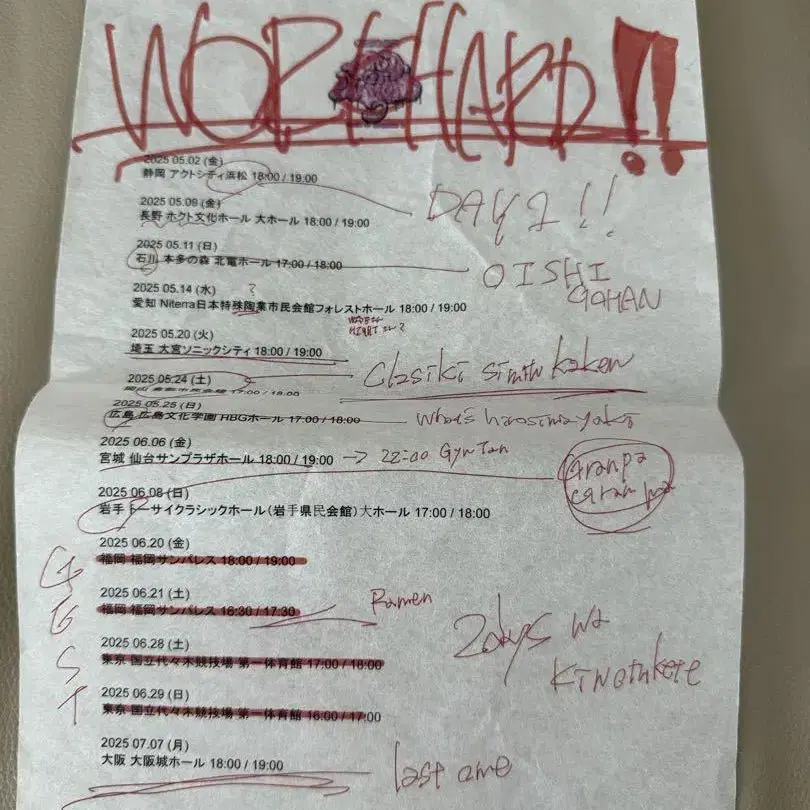 WORK HARD!!
2025 05.02 (金)
静岡 アクトシティ浜松 18:00 / 19:00
2025 05.09 (金)
長野 ホクト文化ホール 大ホール 18:00 / 19:00
DAY 1 !!
2025 05.11 (日)
石川 本多の森 北電ホール 17:00 / 18:00
OISHI
GOHAN
2025 05.14 (水)
?
愛知 Niterra日本特殊陶業市民会館フォレストホール 18:00 / 19:00
2025 05.20 (火)
埼玉 大宮ソニックシティ 18:00 / 19:00
2025 05.24 (土)
17:00 / 18:00
Clasiki
2025 05.25 (日)
広島 広島文化学園 HBGホール 17:00 / 18:00
hirosimayaki
2025 06.06 (金)
宮城 仙台サンプラザホール 18:00 / 19:00
→ 22:00 GyuTan
Granpa
2025 06.08 (日)
岩手 トーサイクラシックホール（岩手県民会館）大ホール 17:00 / 18:00
2025 06.20 (金)
福岡 福岡サンパレス 18:00 / 19:00
2025 06.21 (土)
福岡 福岡サンパレス 16:30 / 17:30
Ramen
2025 06.28 (土)
東京 国立代々木競技場 第一体育館 17:00 / 18:00
2days wa
kiwotukete
2025 06.29 (日)
東京 国立代々木競技場 第一体育館 16:00 / 17:00
2025 07.07 (月)
大阪 大阪城ホール 18:00 / 19:00
last one